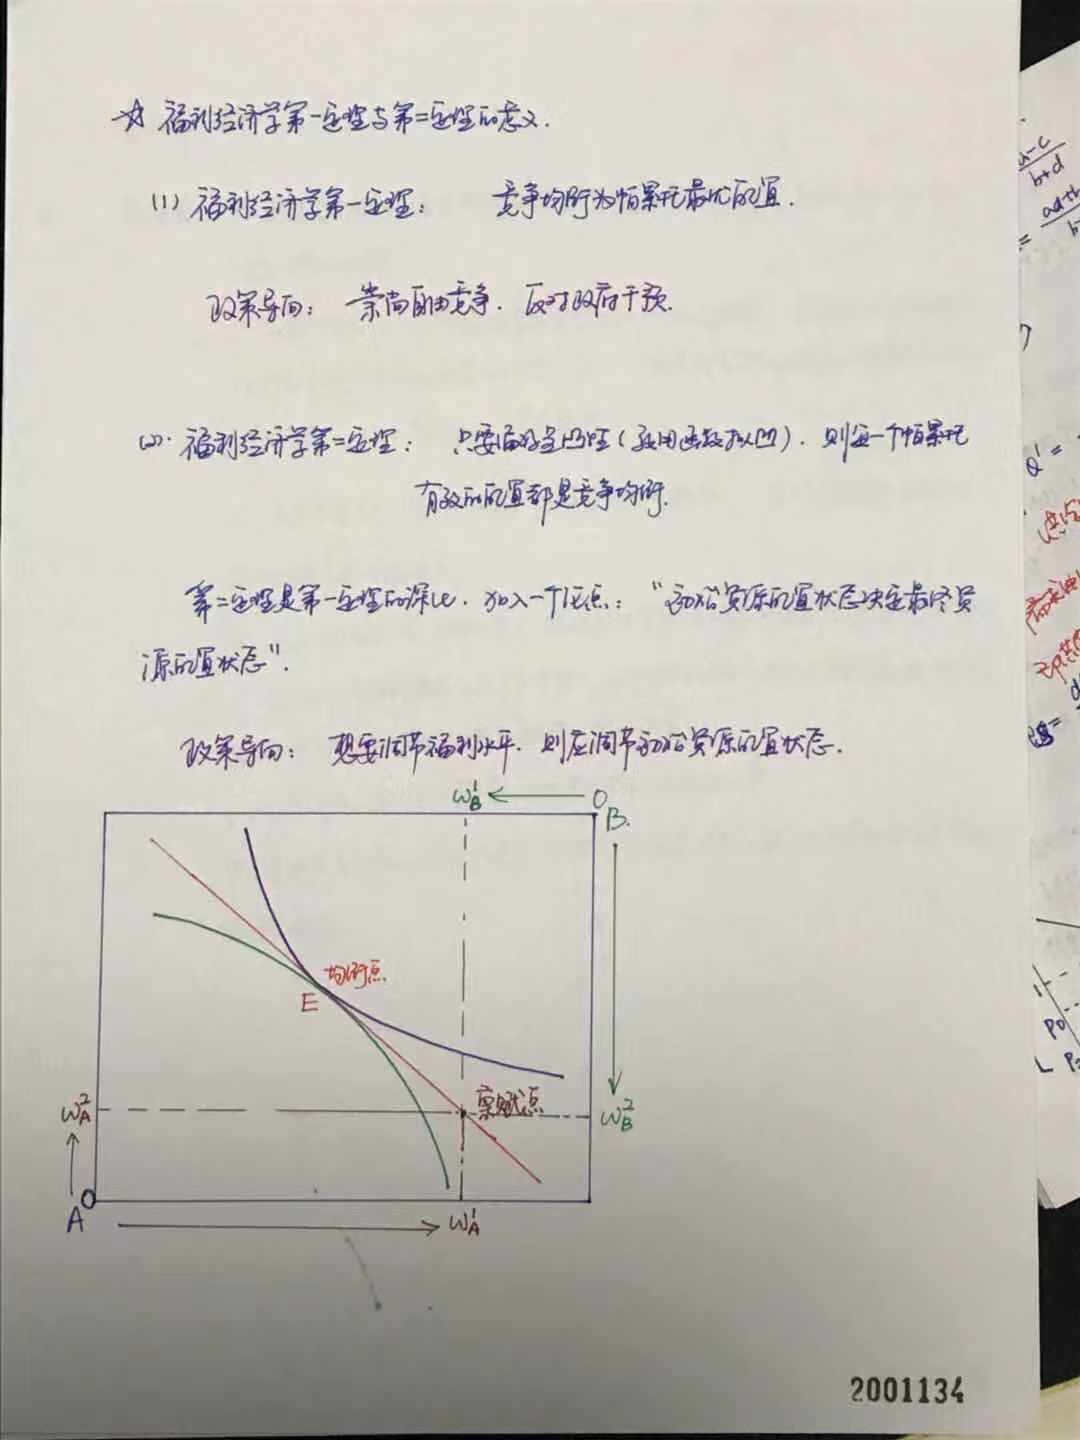 ☆ 福利经济学第一定理与第二定理的意义.
(1) 福利经济学第一定理: 竞争均衡为帕累托最优配置.
政策导向: 崇尚自由竞争. 反对政府干预.
(2). 福利经济学第二定理: 只要偏好呈凸性(效用函数拟凹). 则每一个帕累托
有效的配置都是竞争均衡.
第二定理是第一定理的深化. 加入一个论点: "初始资源配置状态决定最终资
源配置状态".
政策导向: 想要调节福利水平. 则应调节初始资源配置状态.
ω¹B O
B.
均衡点
E
禀赋点
ω²A ω²B
O
A ω¹A
2001134
a-c
b+d
= ad+b
b
Q' =
d
=
P0
L P